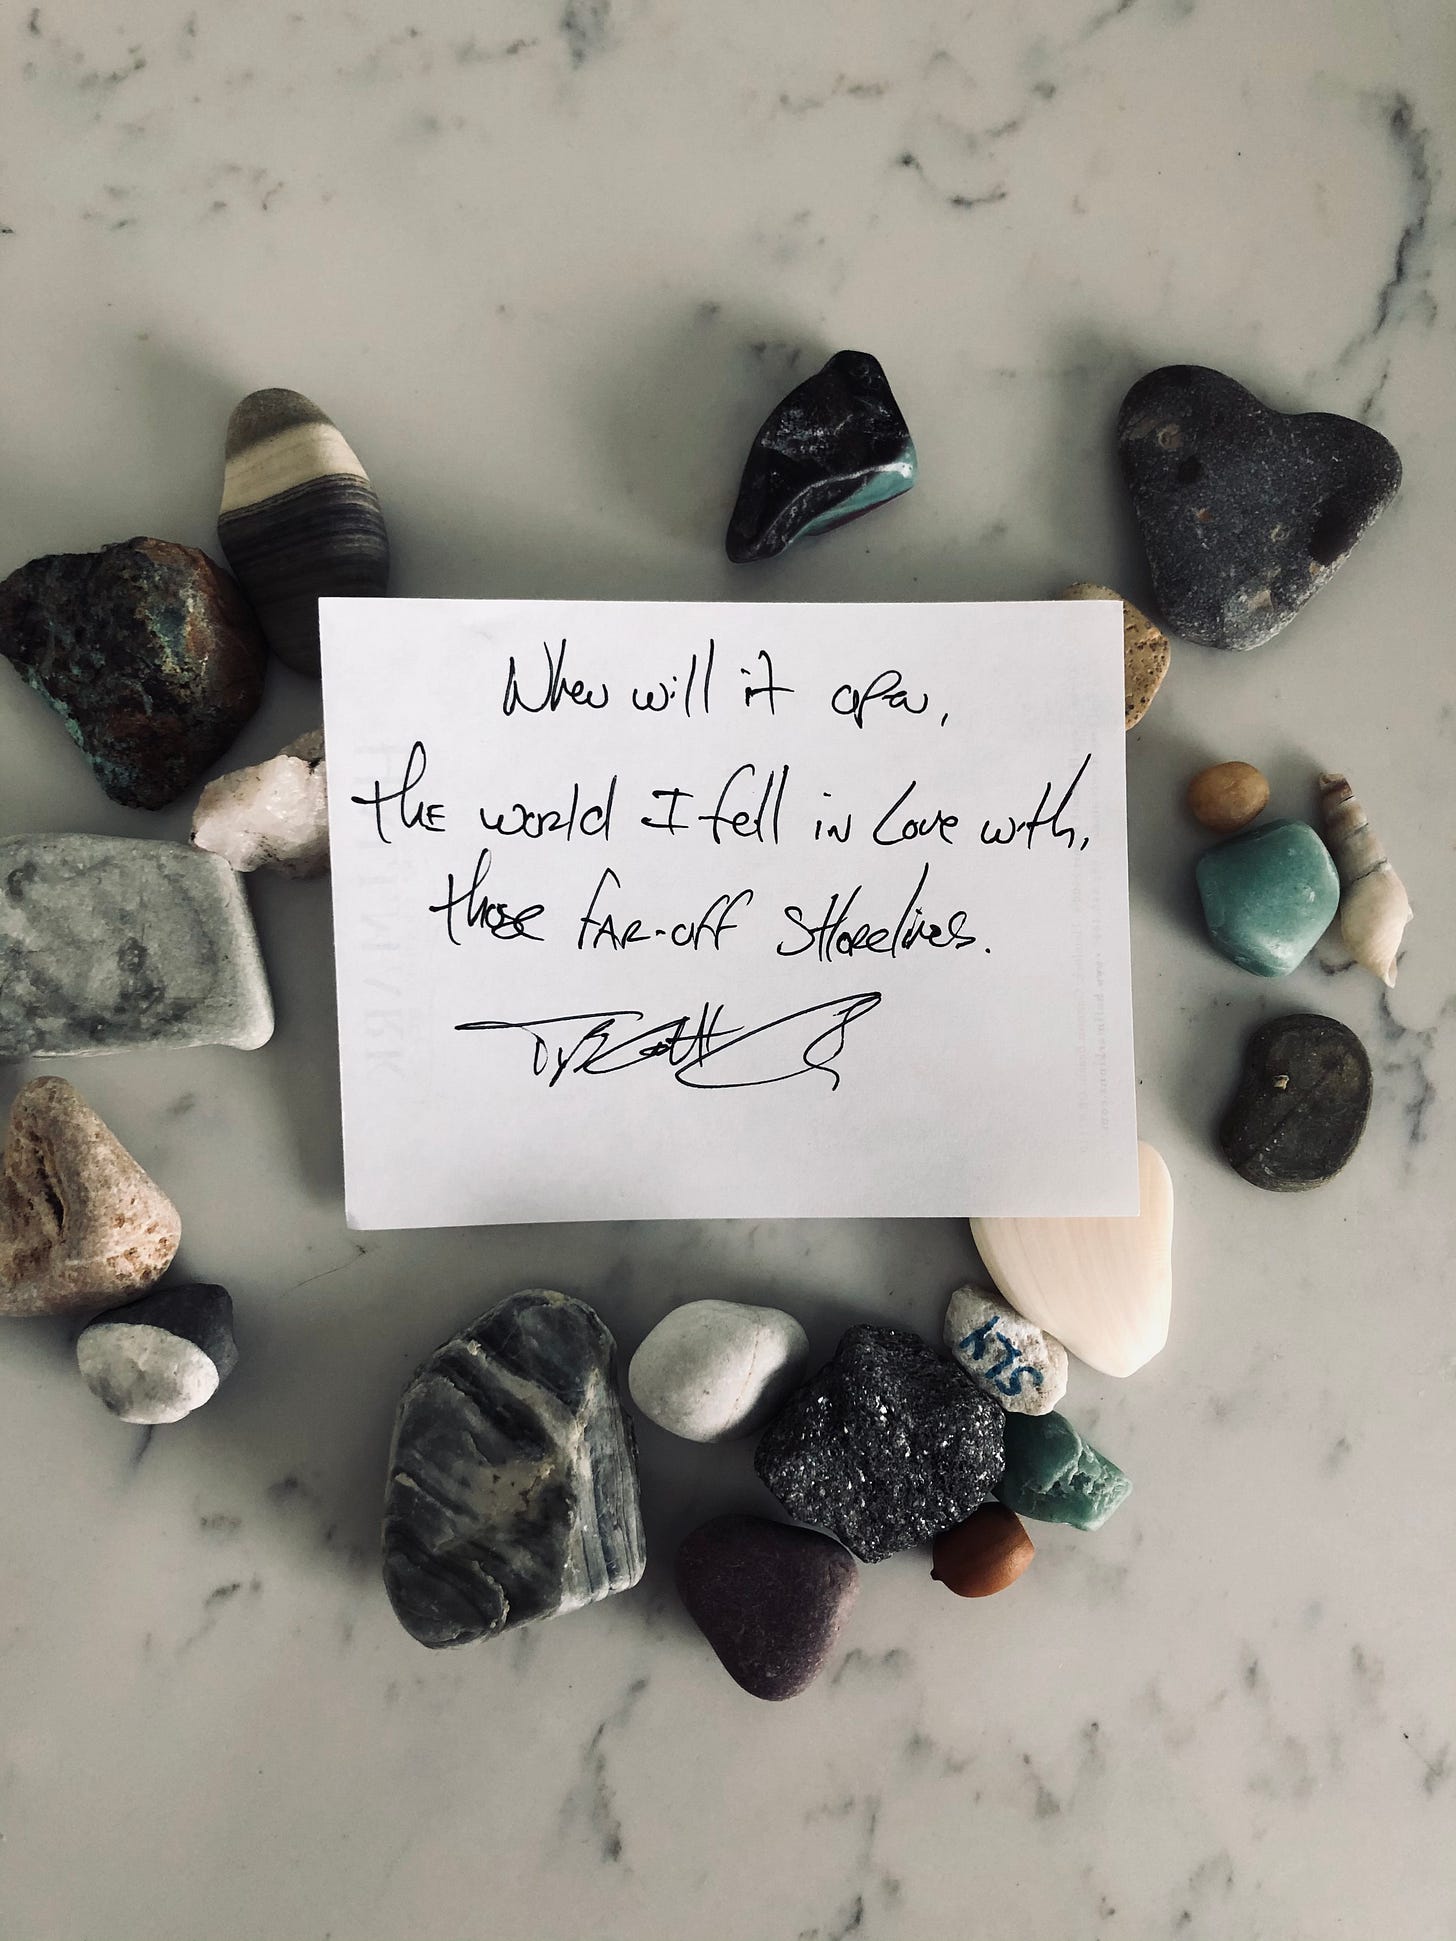 When will it open,
the world I fell in love with,
those far-off shorelines.